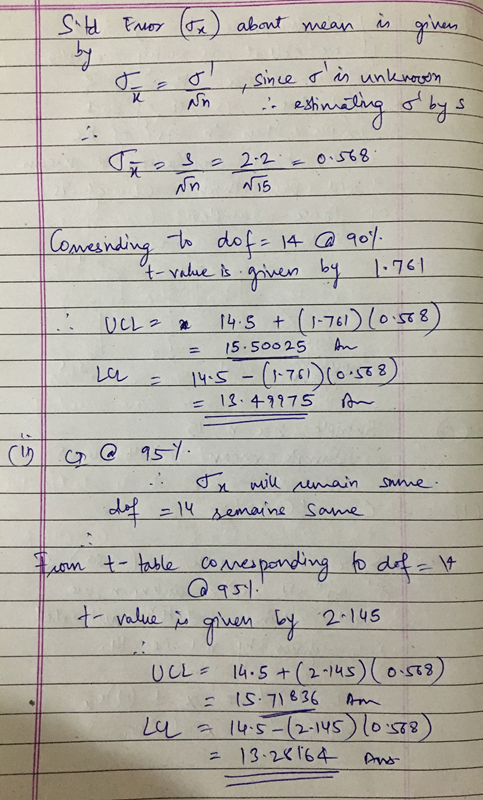 Std Error (σx) about mean is given
by
σx̄ = σ' / √n , since σ' is unknown
∴ estimating σ' by s
∴
σx̄ = s / √n = 2.2 / √15 = 0.568
Corresinding to dof = 14 @ 90%.
t-value is given by 1.761
∴ UCL = 14.5 + (1.761)(0.568)
= 15.50025 An
LCL = 14.5 - (1.761)(0.568)
= 13.49975 An
(ii) CI @ 95%.
∴ σx will remain same.
dof = 14 remains same
∴
From t-table corresponding to dof = 14
@ 95%.
t-value is given by 2.145
∴
UCL = 14.5 + (2.145)(0.568)
= 15.71836 An
LCL = 14.5 - (2.145)(0.568)
= 13.28164 Ans